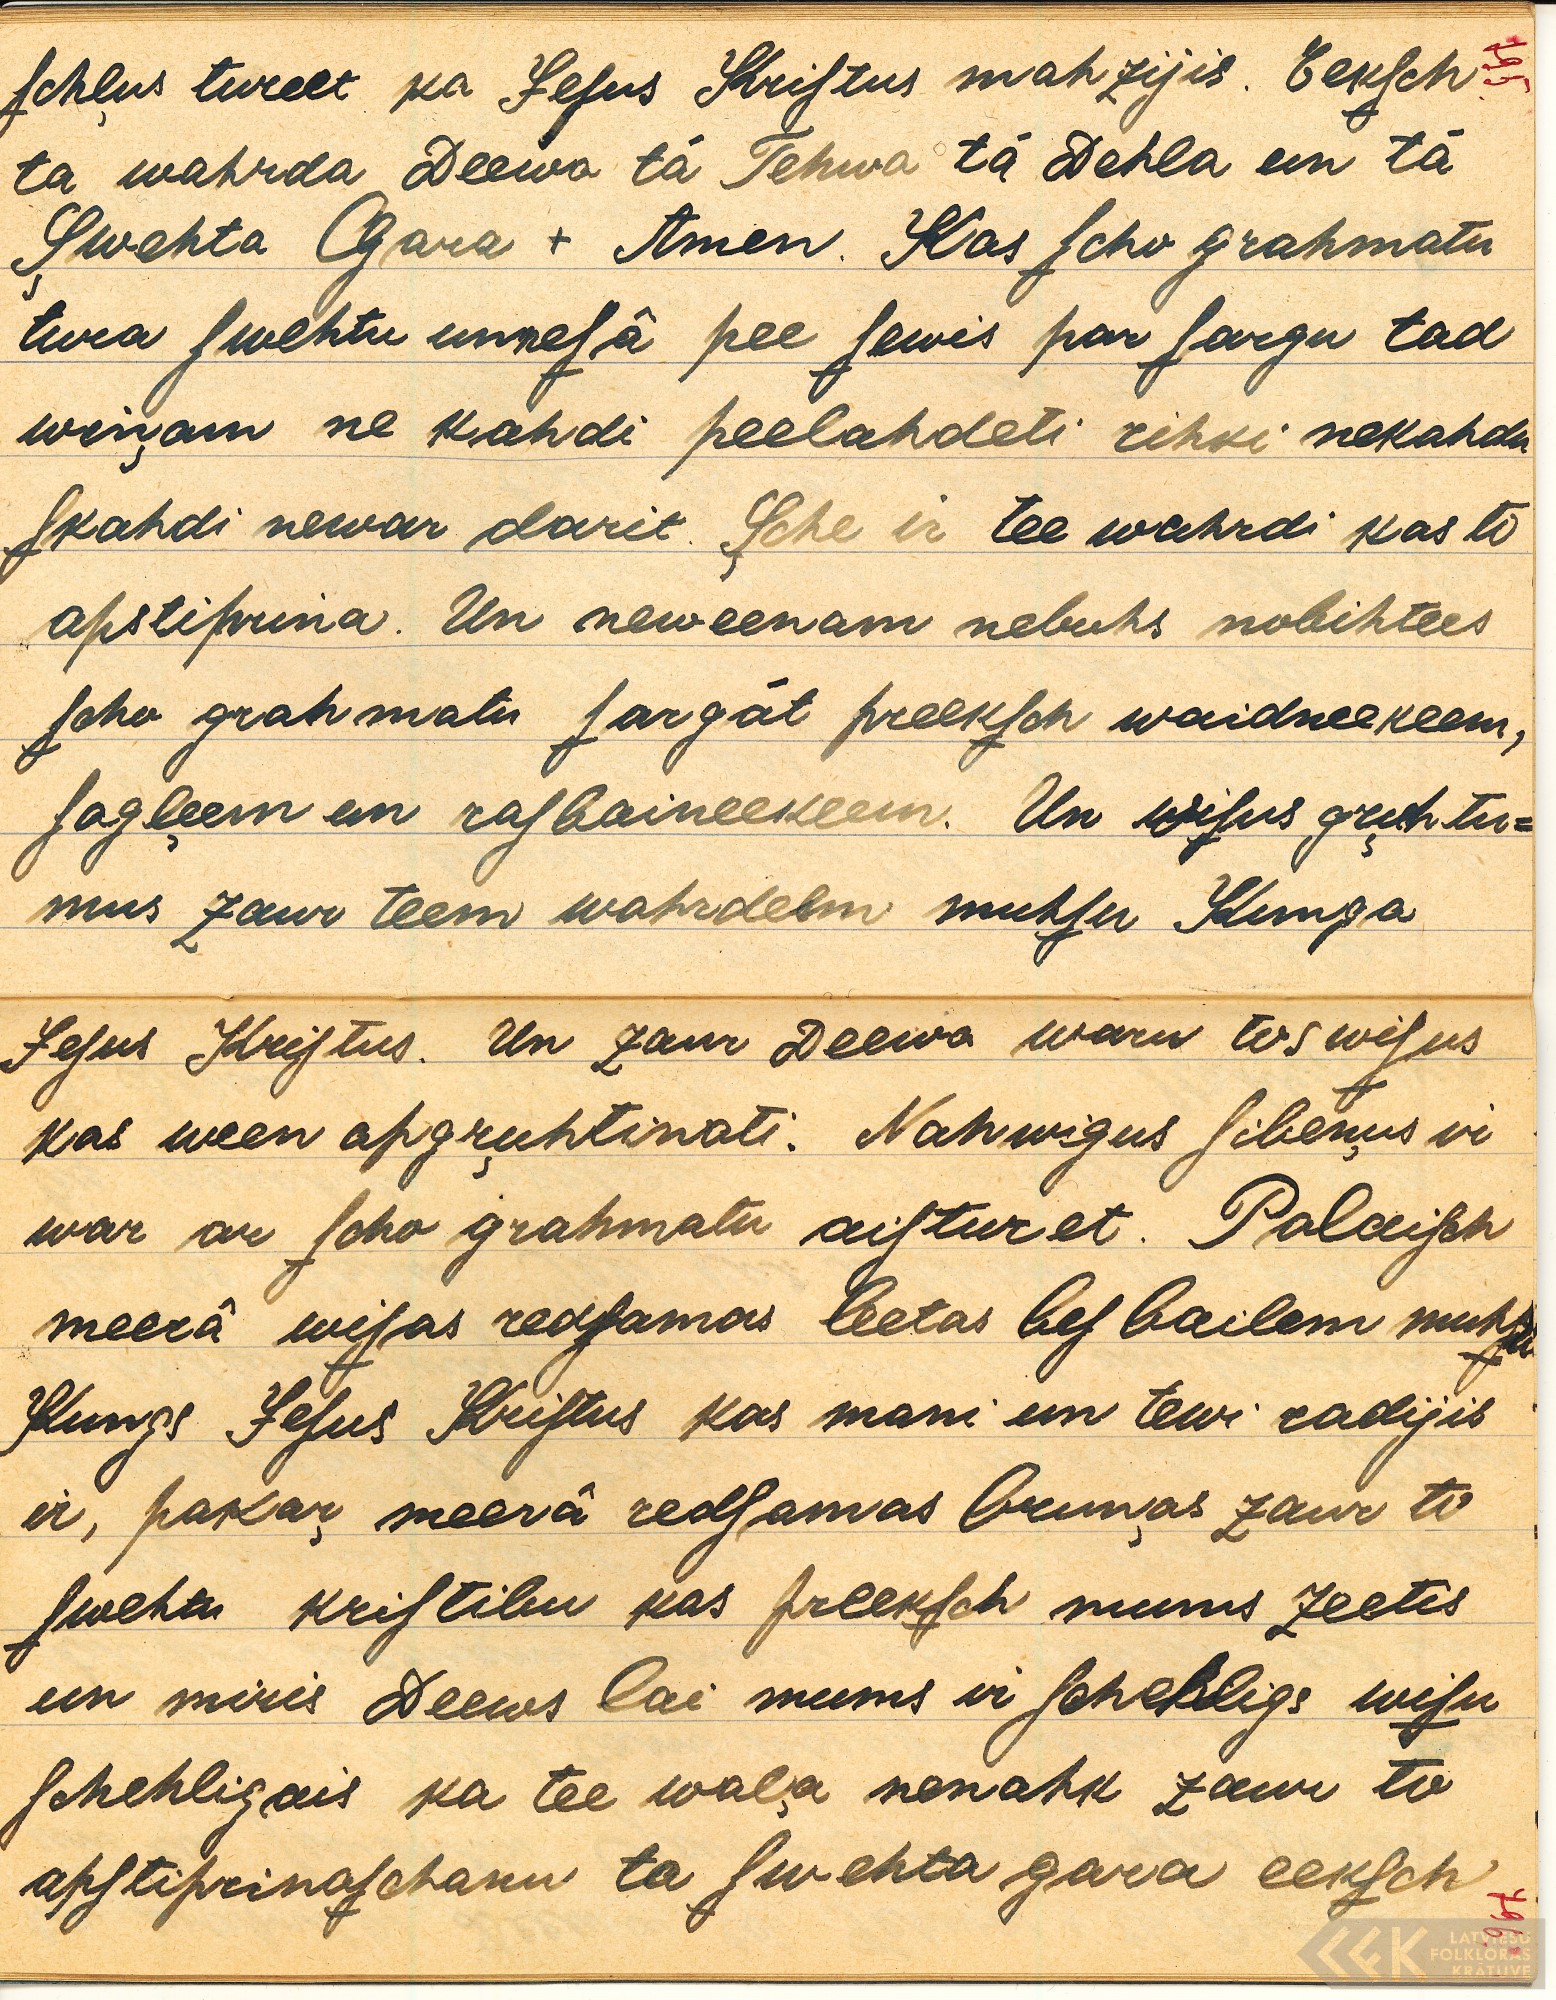 ſchļus tureet ka Jeſus Kriſtus mahzijis. Eekſch
195.
ta wahrda Deewa tá Tehwa tá Dehla un tá
Șwehta Gara + Amen. Kas ſcho grahmatu
tura ſwehtu unneſâ pee ſewis par ſargu tad
wiņam ne kahdi peelahdeti rihki nekahdu
ſkahdi newar darit. Șche ir tee wahrdi kas to
apstiprina. Un neweenam nebuhs nobihtees
ſcho grahmatu ſargát preekſch waidneekeem,
ſagļeem un raſbaineekeem. Un wiſus gŗuhtu=
mus zaur teem wahrdeem muhſu Kunga
Jeſus Kriſtus. Un zaur Deewa waru tos wiſus
kas ween apgŗuhtinati. Nahwigus ſibeņus ir
war ar ſcho grahmatu aiſturet. Palaiſch
meerâ wiſas redſamas leetas beſ bailem muhſu
Kungs Jeſus Kriſtus kas mani un tewi radijis
ir, pakaŗ meerâ redſamas bruņas zaur to
ſwehtu kriſtibu kas preekſch mums zeetis
un miris Deews lai mums ir ſchehligs wiſu
ſchehligais ka tee waļa nenahk zaur to
apſtiprinaſchanu ta ſwehta gara eekſch
196.
LATVIEŠU
FOLKLORAS
KRĀTUVE